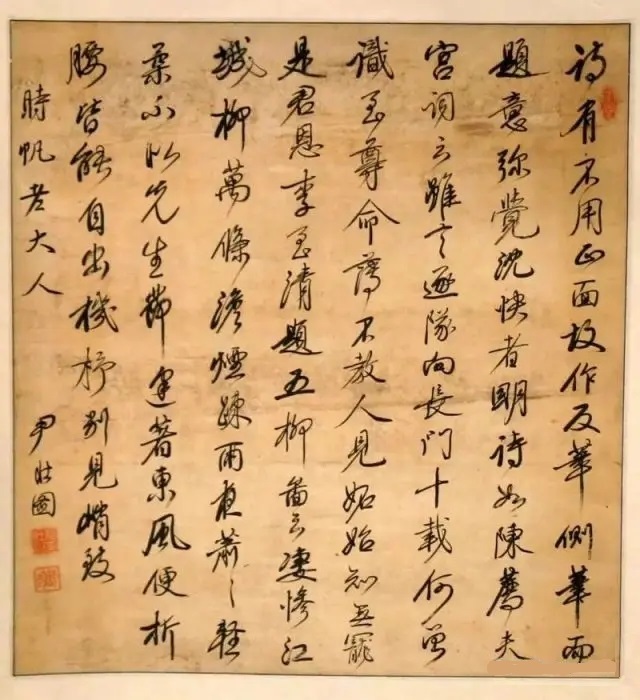 詩有不用正面故作反筆側筆而
題意弥覺沈快者明詩如陳薦夫
宮詞云雖言逐隊向長門十載何曾
識至尊命薄不教人見妬始知無寵
是君恩李至清題五柳圖云凄慘江
城柳萬條澹煙疎雨夜蕭〻輕
柔不似先生節逢著東風便折
腰皆能自出機杼别見峭致
時帆老大人
尹壯圖